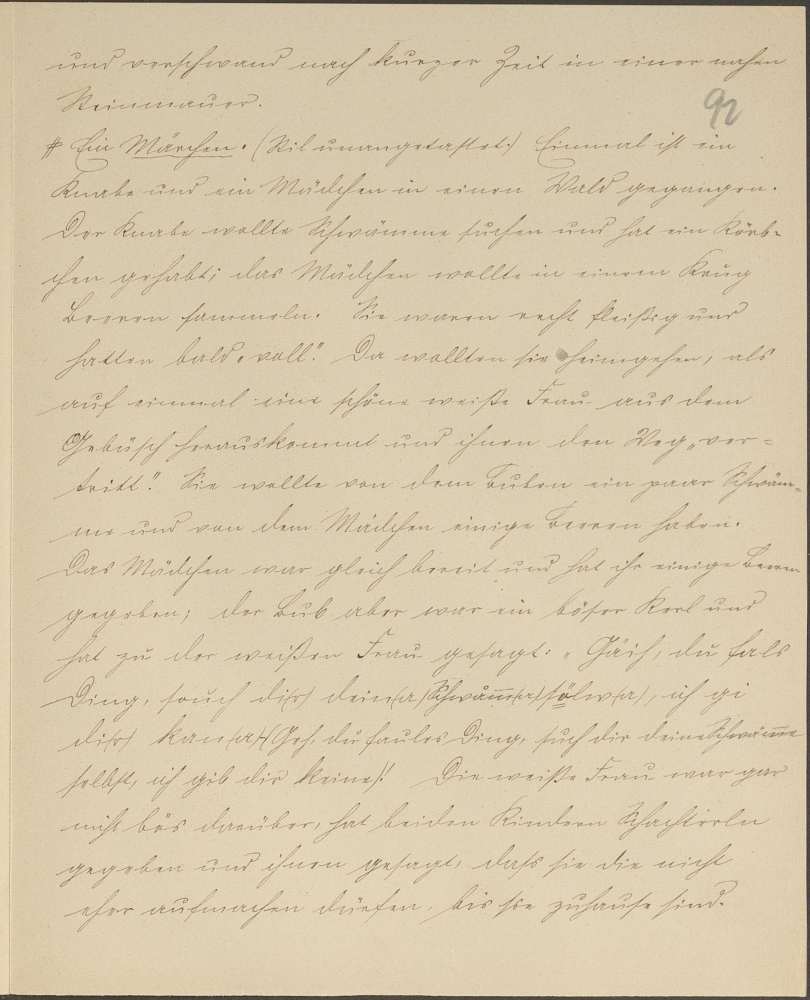 und verschwand nach kurzer Zeit in einer nahen
Steinmauer.
92
# Ein Märchen. (Stil unangetastet:) Einmal ist ein
Knabe und ein Mädchen in einen Wald gegangen.
Der Knabe wollte Schwämme suchen und hat ein Körb-
chen gehabt; das Mädchen wollte in einem Krug
Beeren sammeln. Sie waren recht fleißig und
hatten bald „voll". Da wollten sie heimgehen, als
auf einmal eine schöne weiße Frau aus dem
Gebüsch herauskommt und ihnen den Weg „ver-
tritt". Sie wollte von dem Buben ein paar Schwäm-
me und von dem Mädchen einige Beeren haben.
Das Mädchen war gleich bereit und hat ihr einige Beeren
gegeben; der Bub aber war ein böser Kerl und
hat zu der weißen Frau gesagt: „Gäih, du fals
Ding, souch di(r) dein(a) Schwåmm(a) sölw(a), ich gi
di(r) kan(a)! (Geh, du faules Ding, such dir deine Schwämme
selbst, ich gib dir keine)! Die weiße Frau war gar
nicht bös darüber, hat beiden Kindern Schachterln
gegeben und ihnen gesagt, dass sie die nicht
eher aufmachen dürfen, bis sie zuhause sind.